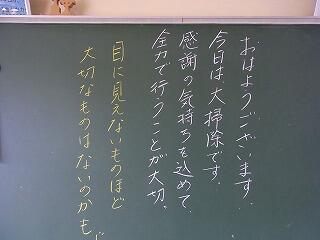 おはようございます.
今日は大掃除です.
感謝の気持ちを込めて.
全力で行うことが大切.
目に見えないものほど
大切なものはないのかも.